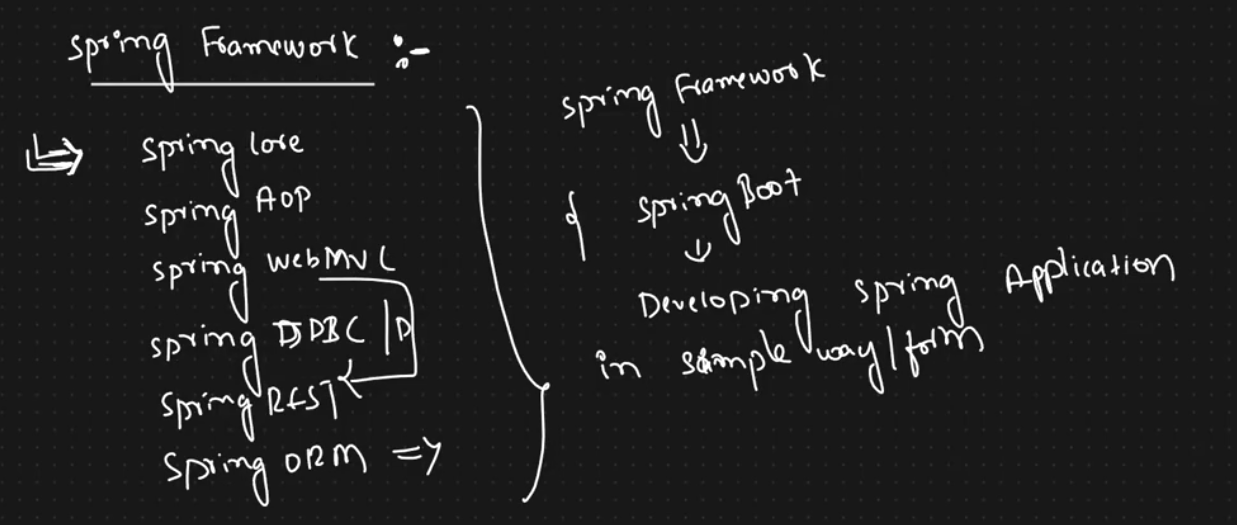 Spring Framework :-
Spring Core
Spring AOP
Spring WebMVC
Spring JDBC |D
Spring REST
Spring ORM =>
Spring Framework
Spring Boot
Developing Spring Application
in simple way/form